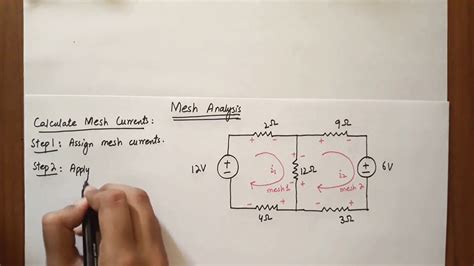 Mesh Analysis
Calculate Mesh Currents:
Step 1: Assign mesh currents.
Step 2: Apply
2Ω 9Ω
+ - + -
12V + - i₁ + 12Ω - i₂ + - 6V
mesh 1 mesh 2
- + - +
4Ω 3Ω